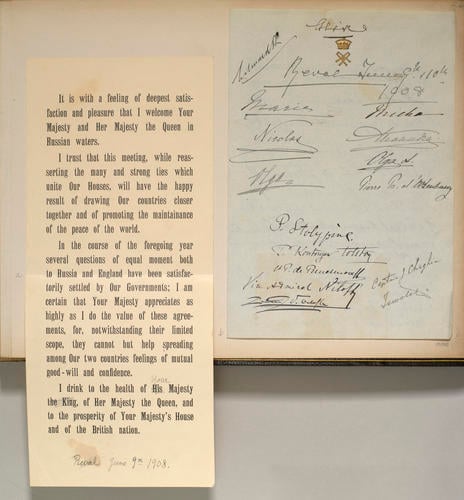 It is with a feeling of deepest satis-
faction and pleasure that I welcome Your
Majesty and Her Majesty the Queen in
Russian waters.
I trust that this meeting, while reas-
serting the many and strong ties which
unite Our Houses, will have the happy
result of drawing Our countries closer
together and of promoting the maintainance
of the peace of the world.
In the course of the foregoing year
several questions of equal moment both
to Russia and England have been satisfac-
torily settled by Our Governments; I am
certain that Your Majesty appreciates as
highly as I do the value of these agree-
ments, for, notwithstanding their limited
scope, they cannot but help spreading
among Our two countries feelings of mutual
good-will and confidence.
Your
I drink to the health of His Majesty
the King, of Her Majesty the Queen, and
to the prosperity of Your Majesty's House
and of the British nation.
Reval June 9th 1908.
Alix
Reval June 9th &10th
1908
Marie
Misha
Nicolas
Olga
Olga
P. Stolypine
Tolstoy
Vice Admiral Niloff